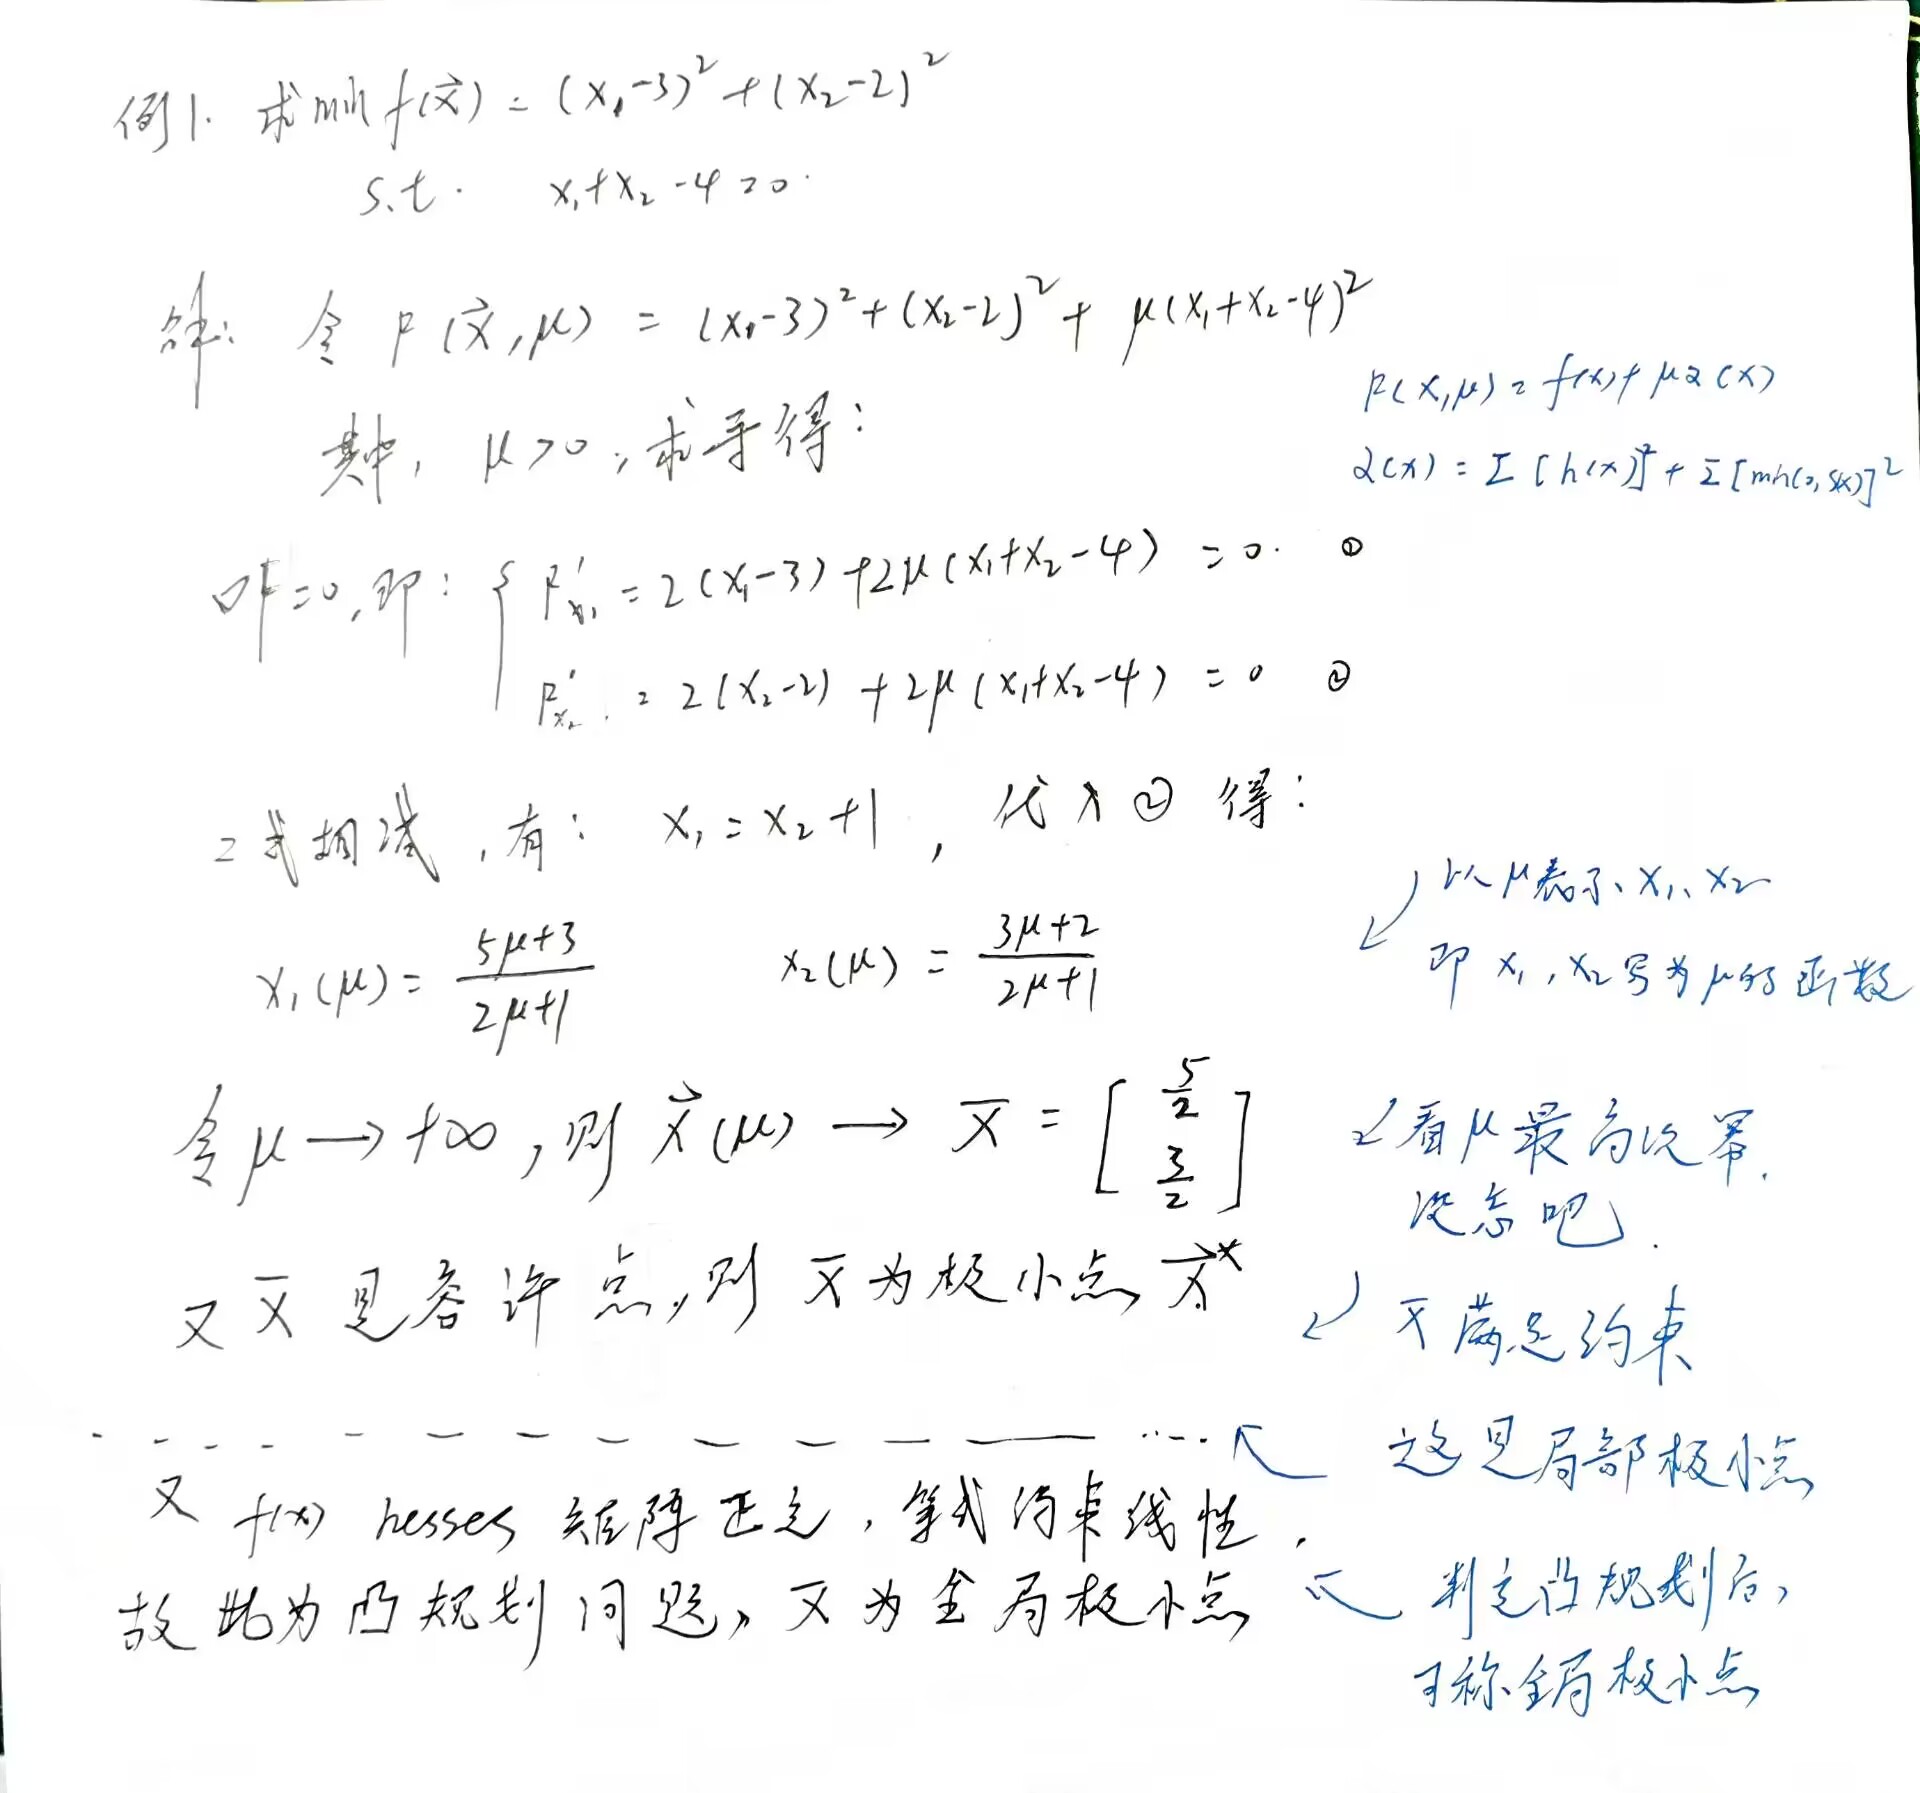 例1. 求 min f(x⃗) = (x₁-3)² + (x₂-2)²
s.t. x₁+x₂-4=0.
解: 令 F(x⃗,μ) = (x₁-3)²+(x₂-2)²+ μ(x₁+x₂-4)²
F(x,μ) = f(x)+μα(x)
其中, μ>0, 求导得:
α(x) = Σ[h(x)]²+Σ[min(0,s(x))]²
∇F=0, 即: { F'x₁ = 2(x₁-3)+2μ(x₁+x₂-4) = 0. ①
F'x₂ = 2(x₂-2)+2μ(x₁+x₂-4) = 0 ②
二式相减, 有: x₁=x₂+1, 代入②得:
以μ表示x₁、x₂
即x₁,x₂写为μ的函数
x₁(μ) = (5μ+3)/(2μ+1) x₂(μ) = (3μ+2)/(2μ+1)
令μ→+∞, 则x⃗(μ) → x̄ = [5/2 3/2]
看μ最高次幂.
没忘吧.
又x̄是容许点, 则x̄为极小点x⃗*
x̄满足约束
这是局部极小点
又 f(x) hesses 矩阵正定, 等式约束线性.
故此为凸规划问题, x̄为全局极小点
判定凸规划后,
可称全局极小点